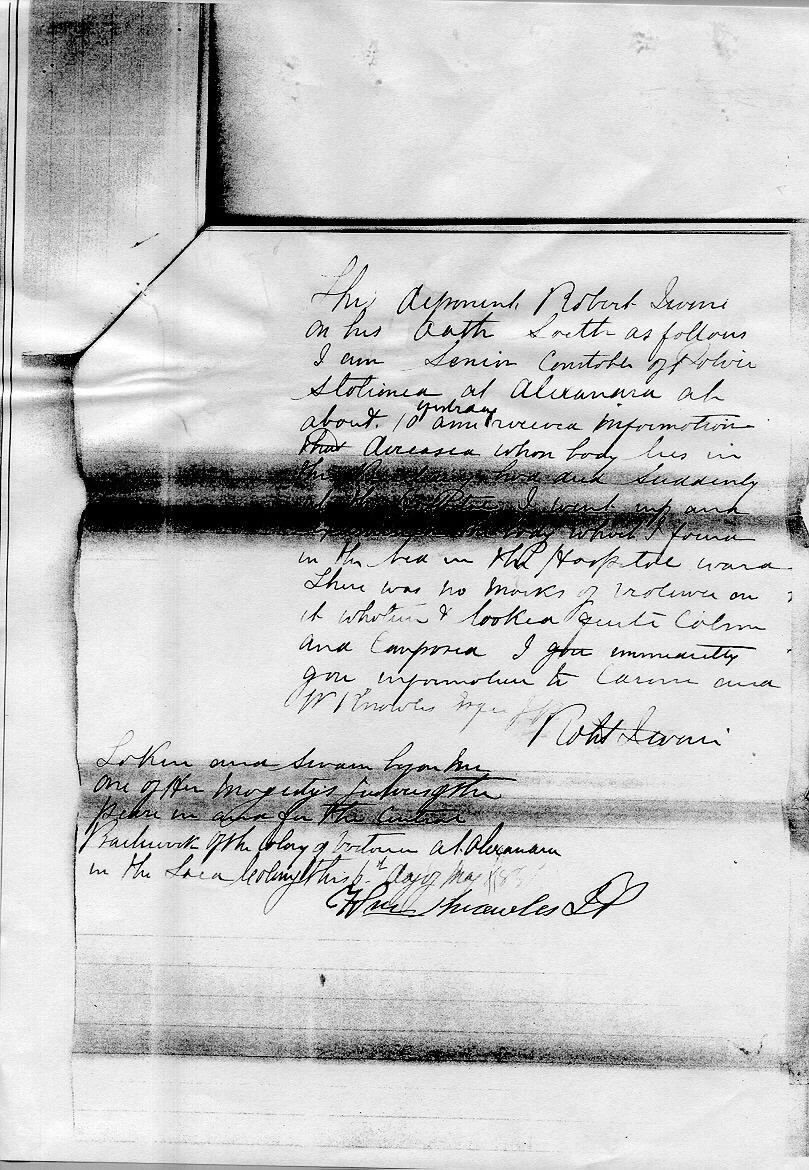 This deponent Robert Irvine
on his Oath Saith as follows
I am Senior Constable of Police
stationed at Alexandra at
about 10 am yesterday received information
that deceased whose body lies in
the had died suddenly
at the I went up and
the body which I found
in the bed in the Hospital ward
There was no marks of violence on
it whatever & looked quite Calm
and Composed I gave immediately
gave information to Coroner and
W Knowles Esqre J.P.
Robt Irvine
Taken and Sworn before me
one of Her Magestys Justices of the
peace in and for the Central
Bailiwick of the colony of Victoria at Alexandra
in the Said Colony this 6th day of May
Wm Knowles JP